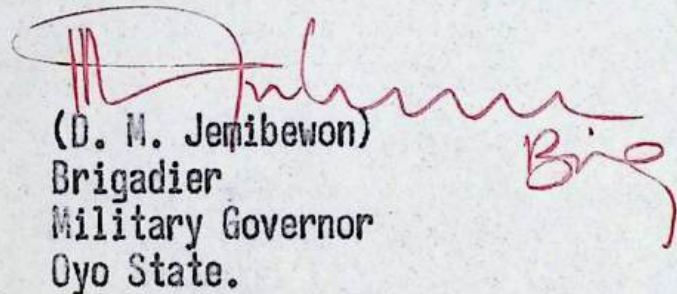 Brig
(D. M. Jemibewon)
Brigadier
Military Governor
Oyo State.